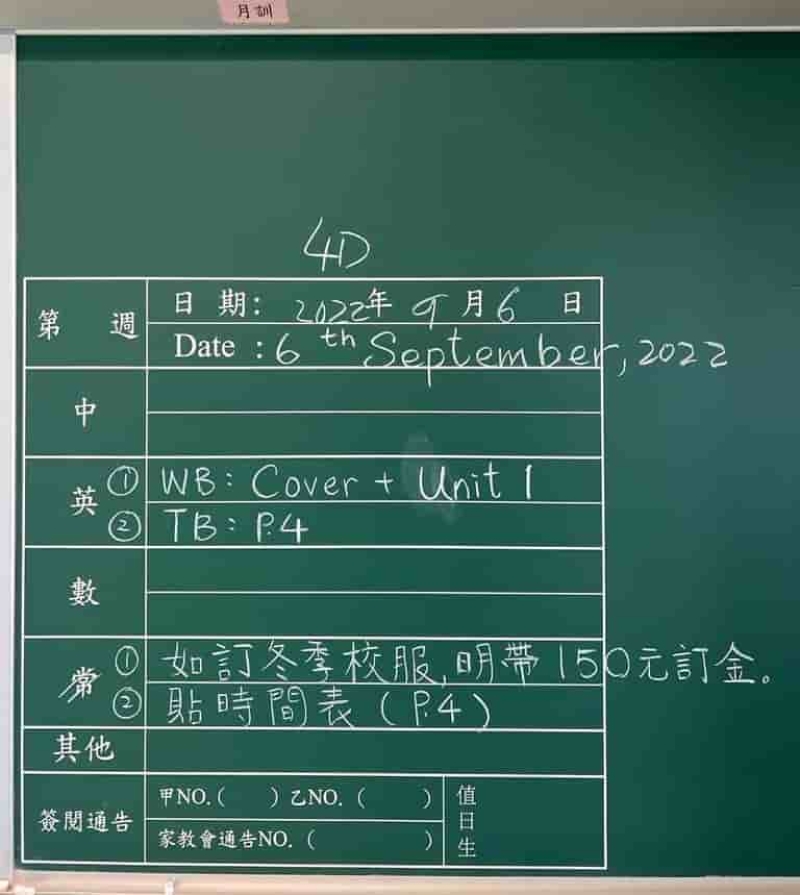 月訓
4D
第 週
日 期： 2022年 9 月 6 日
Date : 6 th September, 2022
中
英
① WB: Cover + Unit 1
② TB: P.4
數
常
① 如訂冬季校服,明帶150元訂金。
② 貼時間表 (P.4)
其他
簽閱通告
甲NO.( ) 乙NO. ( )
家教會通告NO. ( )
值日生